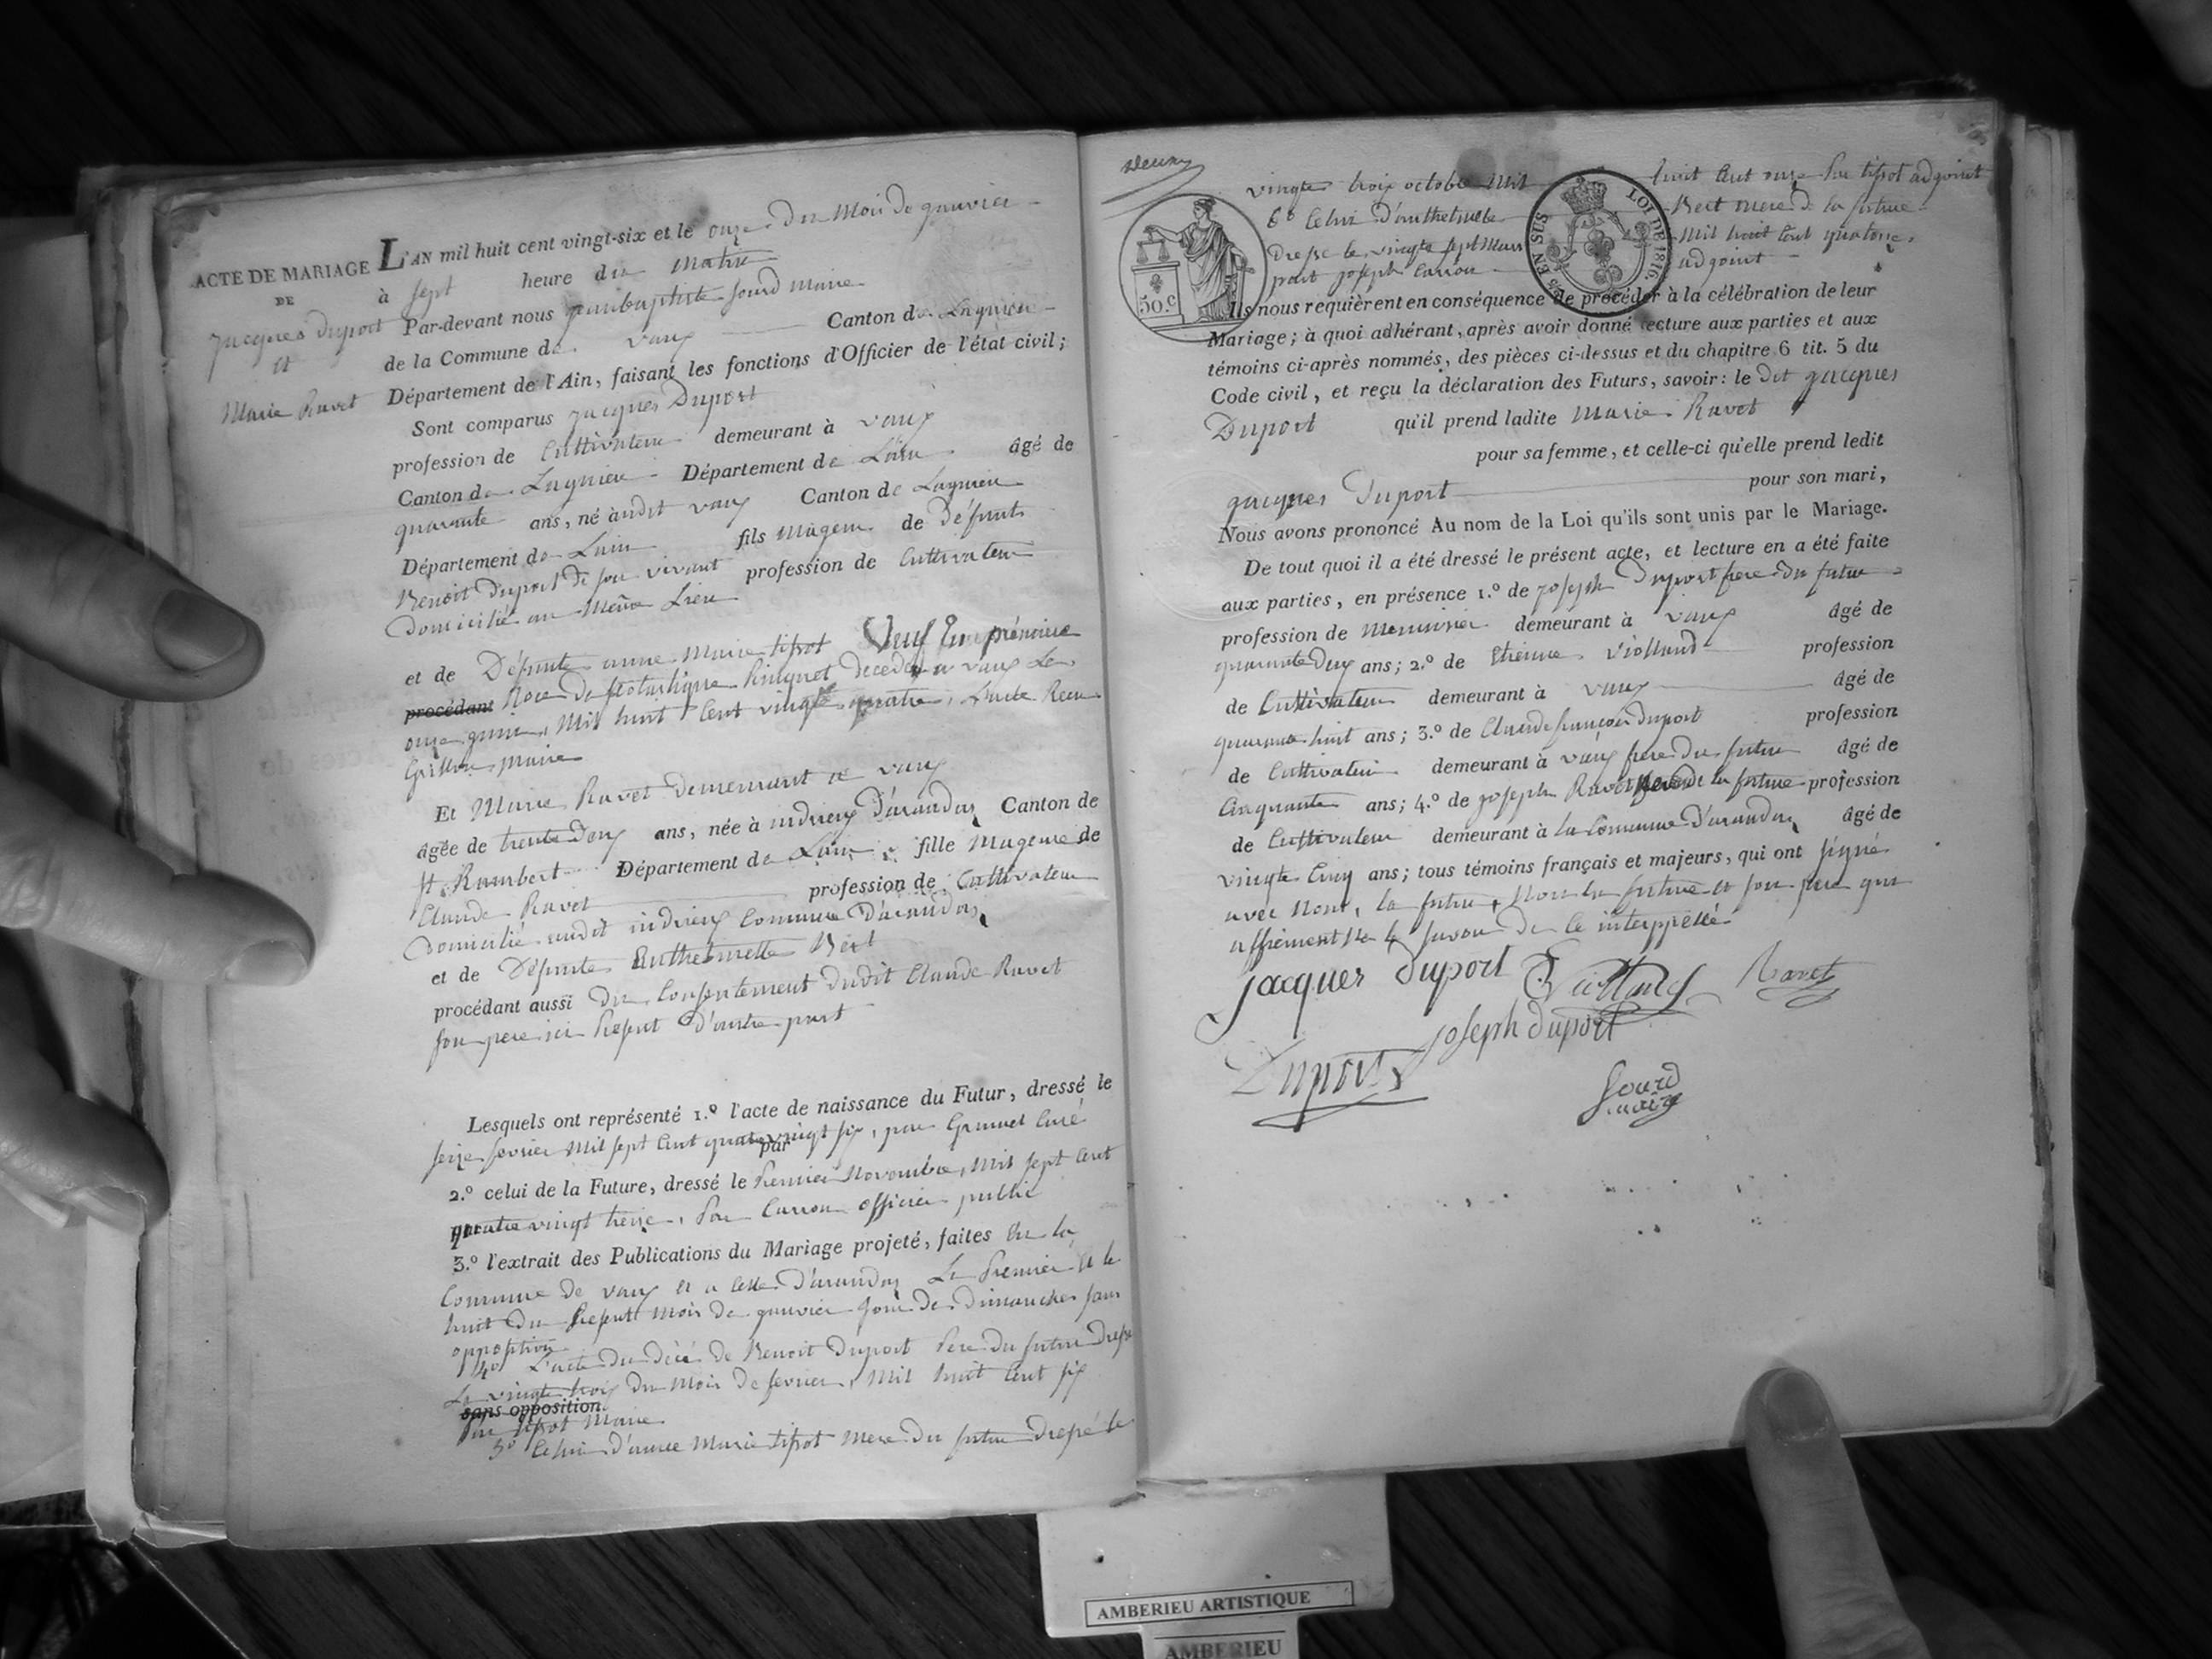 ACTE DE MARIAGE
DE
jacques Duport
et
Marie Ravet
L'AN mil huit cent vingt-six et le onze du Mois de janvier
à sept heure du matin
Par-devant nous jeanbaptiste sourd maire
de la Commune de vaux Canton de Lagnieu
Département de l'Ain, faisant les fonctions d'Officier de l'état civil;
Sont comparus jacques Duport
profession de Cultivateur demeurant à vaux
Canton de Lagnieu Département de Lain âgé de
quarante ans, né àudit vaux Canton de Lagnieu
Département de Lain fils Mageur de Défunt
Benoit Duport de son vivant profession de Cultivateur
Domicilié au Même Lieu
et de Défunte anne Marie tissot Veuf En première
procédant Noce de scolastique décédée a vaux Le
onze juin, Mil huit Cent vingt quatre, Lacte Recu
Grillon maire
Et Marie Ravet Demeurant a vaux
âgée de trente Deux ans, née à indrieux D'arandas Canton de
st Rambert Département de Lain fille Mageure de
Claude Ravet profession de Cultivateur
Domicilié audit indrieux Commune D'arandas
et de Défunte Enthelmette Bert
procédant aussi Du Consentement Dudit Claude Ravet
son pere ici Present D'autre part
Lesquels ont représenté 1.º l'acte de naissance du Futur, dressé le
seize fevrier Mil sept Cent quatre vingt six, par Gramel Curé
par
2.º celui de la Future, dressé le Premier Novembre, Mil sept Cent
quatre vingt treize, Par Carron officier public
3.º l'extrait des Publications du Mariage projeté, faites En la
Commune de vaux et a Celle D'arandas Le Premier et le
huit Du Present Mois de janvier jour de Dimanches sans
opposition
4º L'acte du décé de Benoit Duport Pere du futur Dressé
Le vingte trois du Mois de fevrier, Mil huit Cent six
sans opposition.
Par tissot Maire
5º Celui d'anne Marie tissot Mere du futur Dressé le
vingte trois octobre Mil huit Cent onze Par tissot adjoint
6º Celui D'anthelmette Bert mere de la future
Dressé le vingte sept Mars Mil huit Cent quatorze
part joseph Carron adjoint
50.c
EN SUS
LOI DE 1816.
Ils nous requièrent en conséquence de procéder à la célébration de leur
Mariage; à quoi adhérant, après avoir donné lecture aux parties et aux
témoins ci-après nommés, des pièces ci-dessus et du chapitre 6 tit. 5 du
Code civil, et reçu la déclaration des Futurs, savoir: le dit jacques
Duport qu'il prend ladite Marie Ravet
pour sa femme, et celle-ci qu'elle prend ledit
jacques Duport pour son mari,
Nous avons prononcé Au nom de la Loi qu'ils sont unis par le Mariage.
De tout quoi il a été dressé le présent acte, et lecture en a été faite
aux parties, en présence 1.º de joseph Duport frere du futur
profession de Menuisier demeurant à vaux âgé de
quarante Deux ans; 2.º de Etienne Violland profession
de Cultivateur demeurant à vaux âgé de
quarante huit ans; 3.º de Claude francois duport profession
de Cultivateur demeurant à vaux frere Du futur âgé de
Cinquante ans; 4.º de joseph Ravet de la future profession
de Cultivateur demeurant à la Commune D'arandas âgé de
vingte Cinq ans; tous témoins français et majeurs, qui ont signé
avec Nous, la future et son pere qui
ne le savoir de Ce interppellé
jacques duport Violland Ravet
joseph duport
Duport
Sourd
maire
AMBERIEU ARTISTIQUE
AMBERIEU